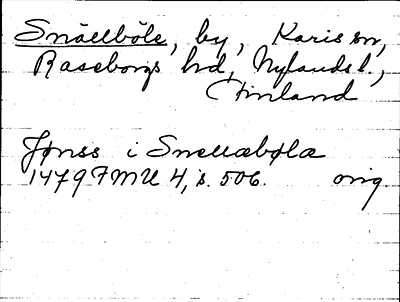 Snällböle, by, Karis sn,
Raseborgs hd, Nylands l.,
Finland
Jønss i Snellæbøla
1479 FMU 4, s. 506. orig